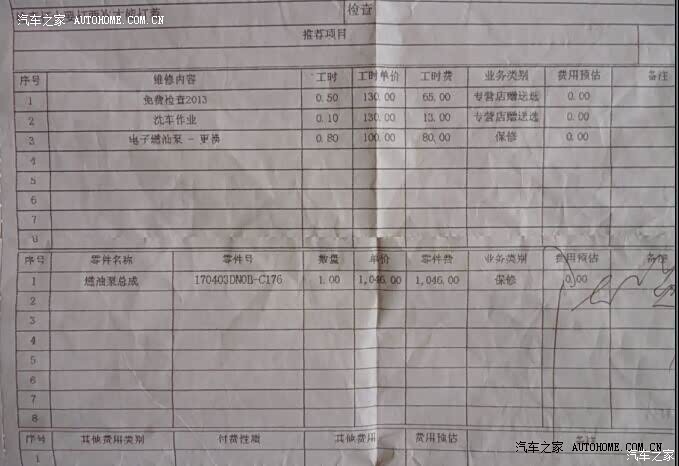 汽车之家 AUTOHOME.COM.CN
检查
推荐项目
序号 维修内容 工时 工时单价 工时费 业务类别 费用预估 备注
1 免费检查2013 0.50 130.00 65.00 专营店赠送选 0.00
2 洗车作业 0.10 130.00 13.00 专营店赠送选 0.00
3 电子燃油泵 - 更换 0.80 100.00 80.00 保修 0.00
4
5
6
7
8
序号 零件名称 零件号 数量 单价 零件费 业务类别 费用预估 备注
1 燃油泵总成 170403DN0B-C176 1.00 1,046.00 1,046.00 保修 0.00
2
3
4
5
6
7
8
序号 其他费用类别 付费性质 其他费用 费用预估 备注
1
汽车之家 AUTOHOME.COM.CN
汽车之家